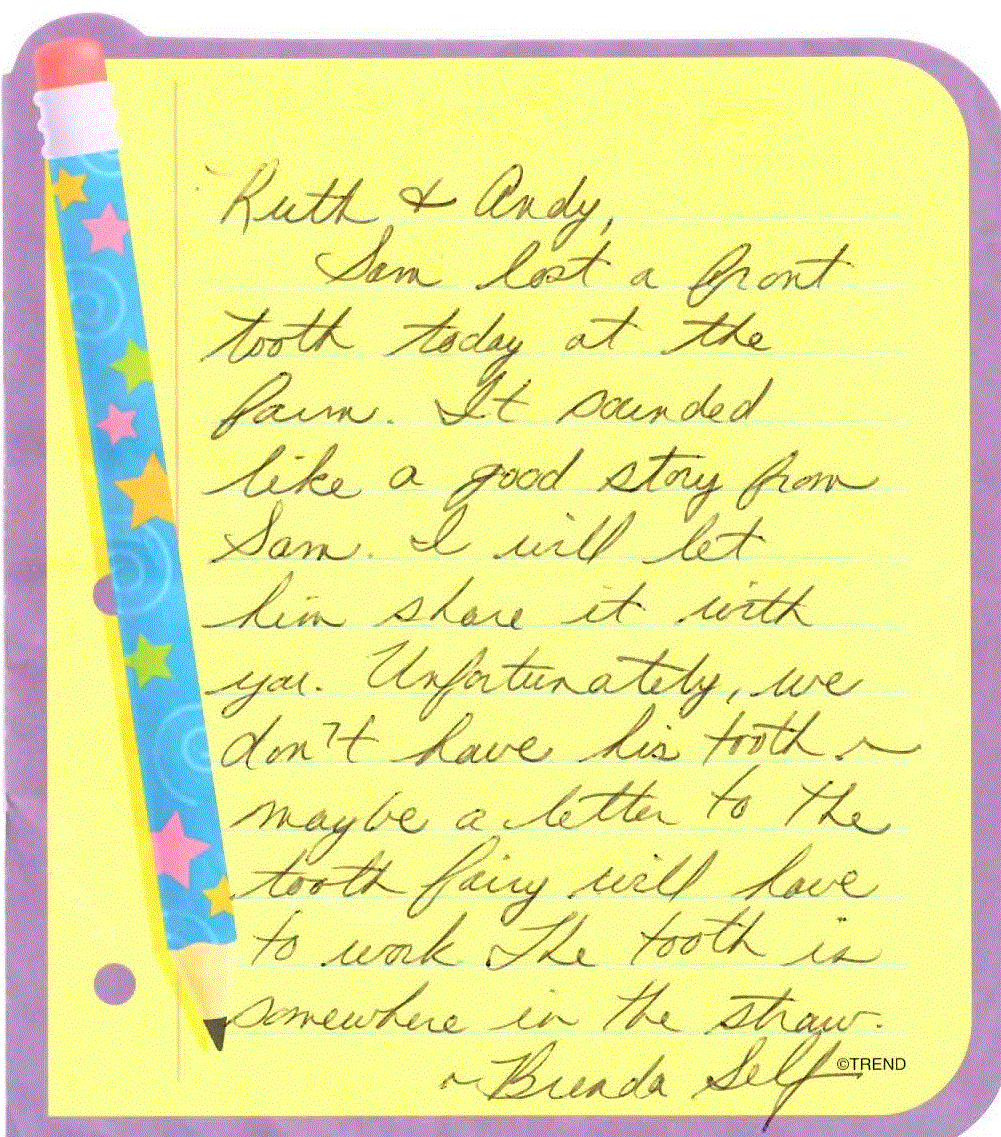 Ruth & Andy,
Sam lost a front
tooth today at the
farm. It sounded
like a good story from
Sam. I will let
him share it with
you. Unfortunately, we
don't have his tooth ~
maybe a letter to the
tooth fairy will have
to work. The tooth is
somewhere in the straw.
~ Brenda Self
©TREND